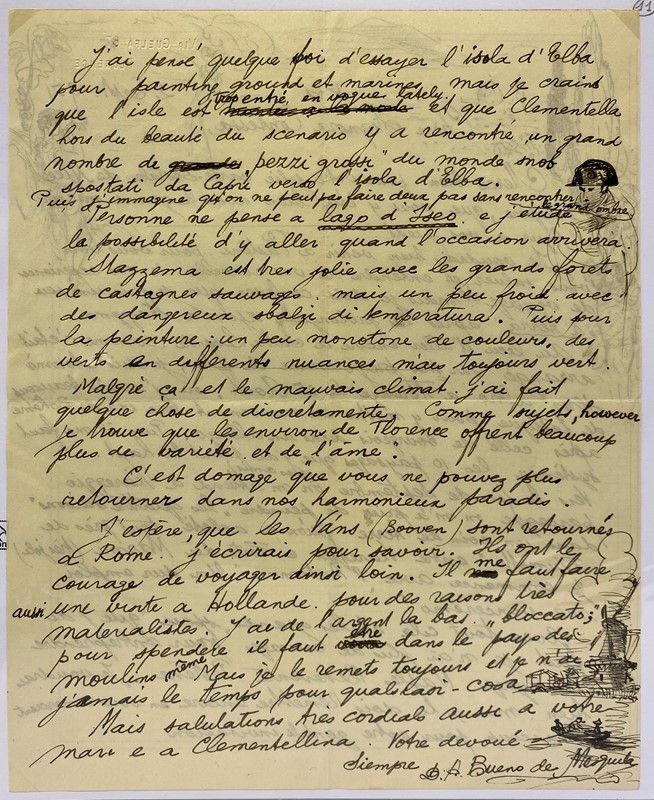 91
VIA GUELFA 85
J'ai pensé quelque foi d'essayer l'isola d'Elba
pour painting ground et marines, mais je crains
que l'isle est trop entré, en vogue lately et que Clementella
hors du beauté du scenario y a rencontré un grand
nombre de "pezzi grossi" du monde snob
spostati da Capri verso l'isola d'Elba.
Puis j'immagine qu'on ne peut pas faire deux pas sans rencontrer
le grand ombre
Personne ne pense a lago d'Iseo. e j'etude
la possibilité d'y aller quand l'occasion arrivera.
Stazzema est tres jolie avec les grands forets
de castagnes sauvages. mais un peu froid. avec
des dangereux sbalzi di temperatura. Puis pour
la peinture: un peu monotone de couleurs. des
verts en differents nuances mais toujours vert.
Malgrè ça et le mauvais climat. j'ai fait
quelque chose de discrètamente. Comme sujets, however
je trouve que les environs de Florence offrent beaucoup
plus de varieté. et de l'âme".
C'est domage que vous ne pouvez plus
retourner dans nos harmonieux paradis.
J'espère, que les Vans (Booven) sont retournés
a Rome. j'écrirais pour savoir. Ils ont le
courage de voyager ainsi loin. Il me faut faire
aussi une visite a Hollande. pour des raisons très
materialistes. J'ai de l'argent la bas. "bloccato;"
pour spendere il faut etre dans le pays des
moulins même. Mais je le remets toujours et je n'ai
jamais le temps pour qualskasi-cosa
Mais salutations très cordials aussi a votre
mari e a Clementellina. Votre devoué
Siempre D. A. Bueno de Mesquita